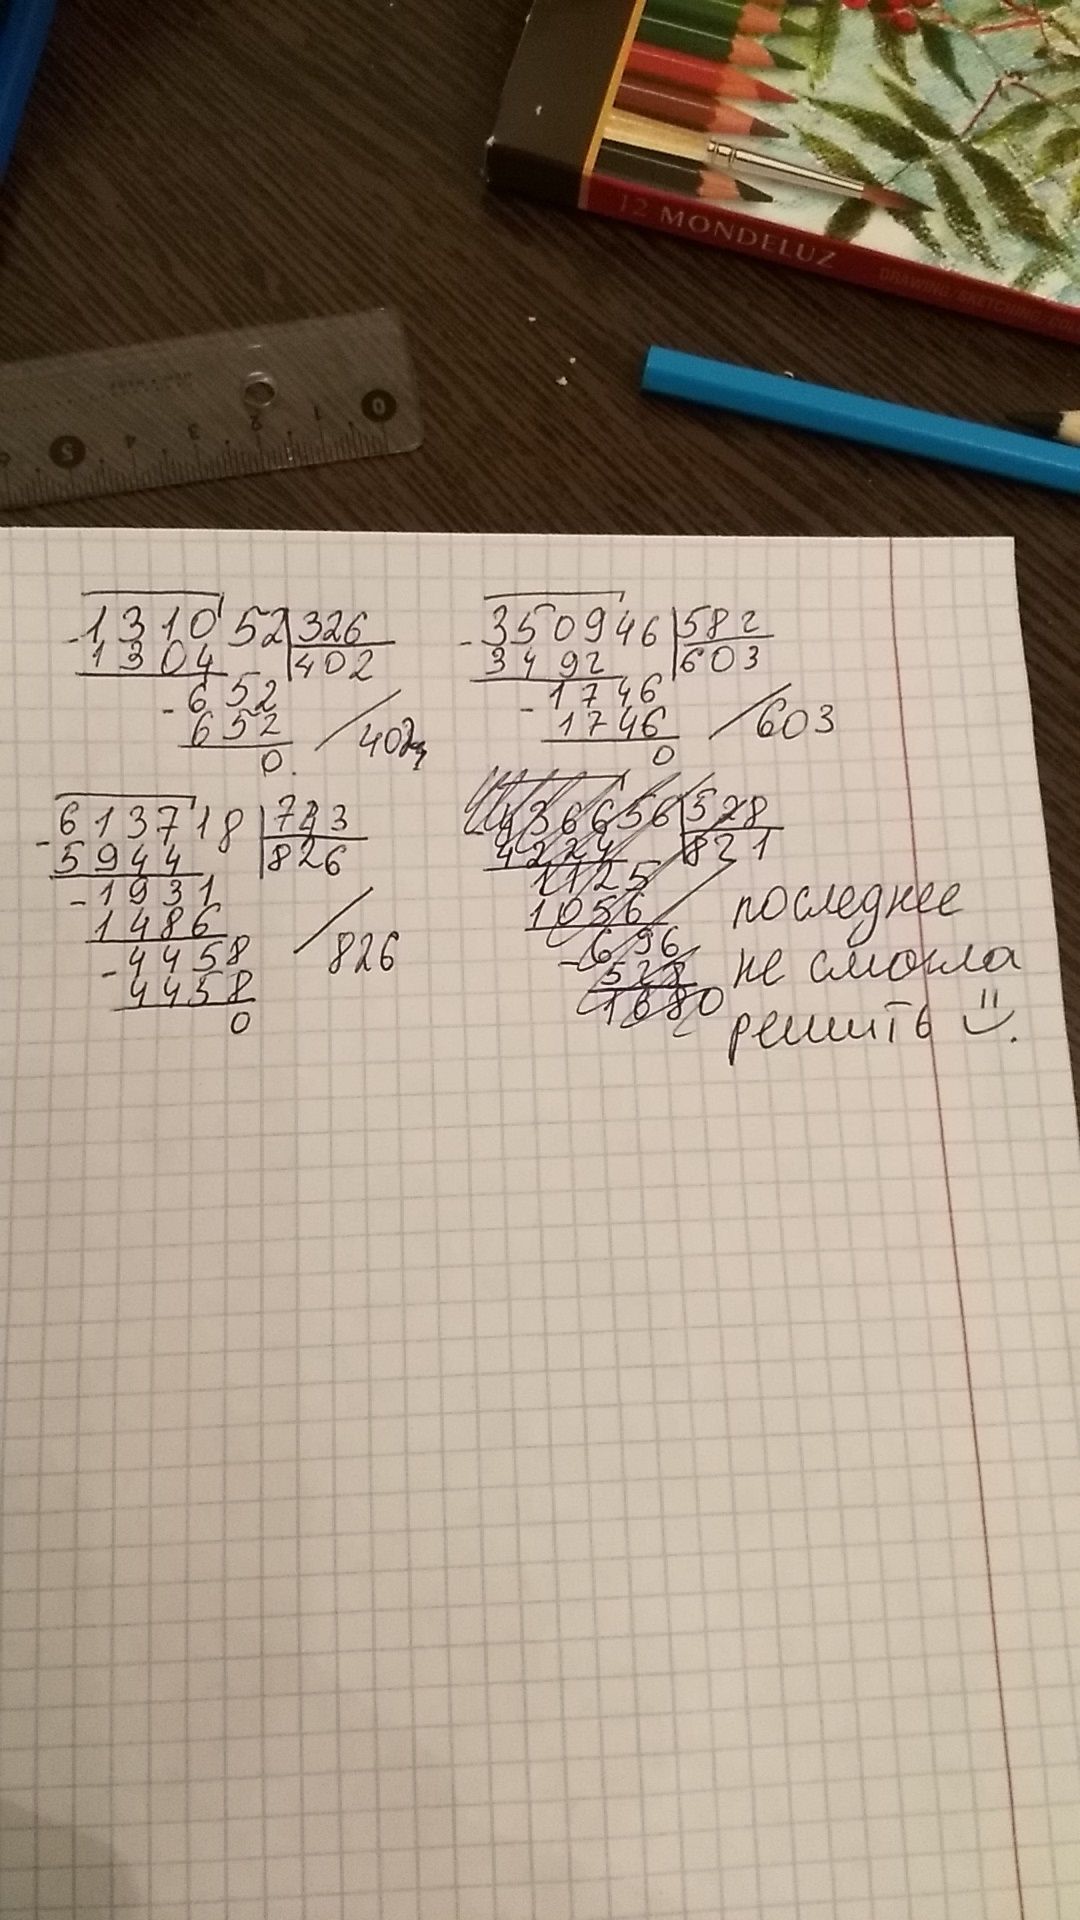 12 MONDELUZ
DRAWING. SKETCHING. COL
0 1 2 3 4 5 6
131052 326
1304 402
- 652
652 / 402
0.
- 350946 582
3492 603
- 1746
1746 / 603
0
- 613718 743
5944 826
- 1931
1486
- 4458 / 826
4458
0
436656 528
4224 821
1125
1056
- 696
528
1680
последнее
не смогла
решить .